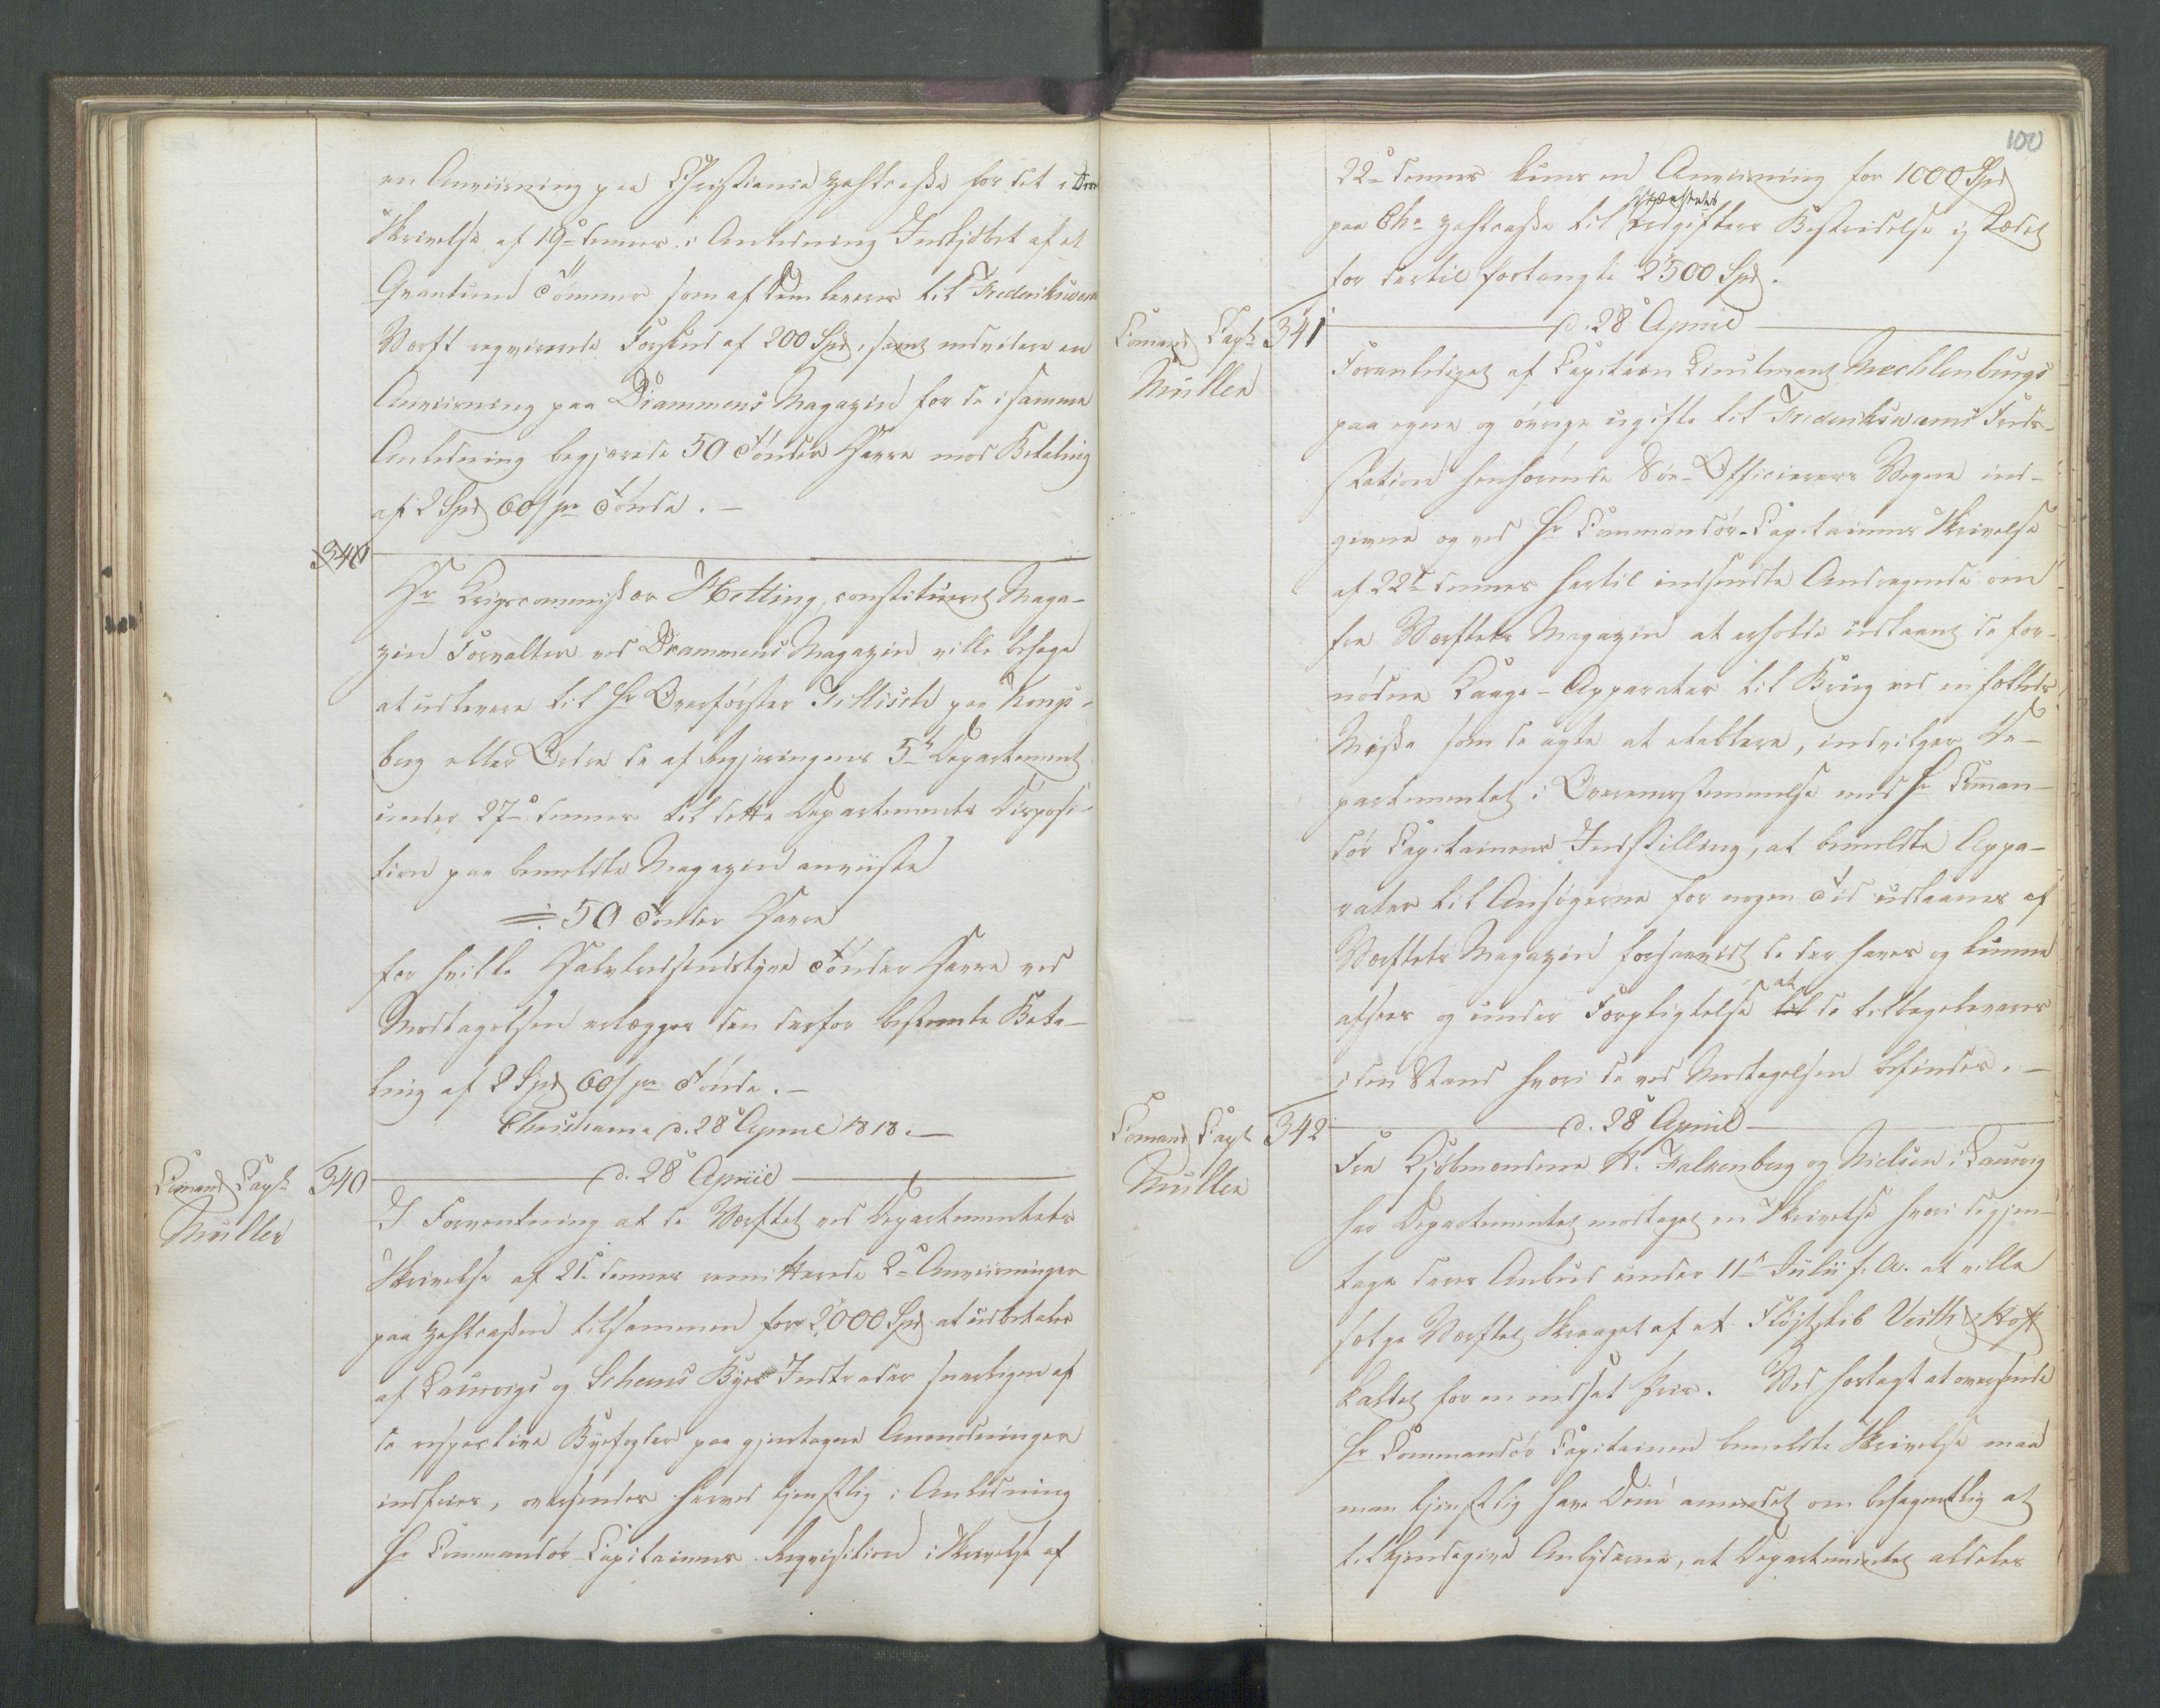 en Anviisning paa Christiania Zahlcasse for det i Deres
Skrivelse af 19de dennes i Anledning Indkjöbet af et
Qvantum Tömmer som af Dem leveres til Frederiksværns
Værft reqvirerede Forskud af 200 Spd, samt endvidere en
Anviisning paa Drammens Magazin for de i samme
Anledning begjærede 50 Tönder Havre mod Betaling
af 2 Spd 60 s pr Tönde. –
340
Hr Krigscommissær Hetting, constitueret Maga-
zin Forvalter ved Drammens Magazin ville behage
at udlevere til Hr Overförster Jettisch paa Kongs-
berg eller Ordre de af Regjeringens 5te Departement
under 27de dennes til dette Departements Disposi-
tion paa bemeldte Magazin anviiste
50 Tönder Havre
for hvilke Halvtredsindstyve Tönder Havre ved
Modtagelsen erlægges den derfor bestemte Beta-
ling af 2 Spd 60 s pr Tönde. –
Christiania d. 28 April 1818. –
Comand Capt
Müller
340
d. 28 April
I Forventning at de Værftet ved Departementets
Skrivelse af 21de dennes remitterede 2de Anviisninger
paa Zahlcassen tilsammen for 2000 Spd at udbetales
af Laurvigs og Scheens Byes Indtrader snarligen af
de respective Byefogder paa gjentagne Anmodninger
indfries, oversendes herved tjenstlig i Anledning
Hr Commandör-Capitainens Reqvisition i Skrivelse af
100
22de dennes kuns en Anviisning for 1000 Spd
paa Cha Zahlcasse til Værftets Udgifters Bestridelse istædet
for dertil forlangte 2500 Spd.
Comand Capt
Müller
341
d. 28 April
Foranlediget af Capitain Lieutenant Mecklenburgs
paa egne og övrige ugifte til Frederiksværns Fred-
station henhörende Söe-Officierers Vegne ind-
givne og ved Hr Commandör-Capitainens Skrivelse
af 22de dennes hertil indsendte Andragende om
fra Værftets Magazin at erholde udlaant de for-
nödne Kaage-Apparater til Brug ved en fælleds
Messe som de agte at etablere, indvilger De-
partementet i Overeensstemmelse med Hr Coman-
dör Capitainens Indstilling, at bemeldte Appa-
rater til Ansögerne for nogen Tid udlaanes af
Værftets Magazin forsaavidt de der haves og kunne
afsees og under Forpligtelse at de tilbageleveres
i den Stand hvori de ved Modtagelsen befindes. –
Comand Capt
Müller
342
d. 28 April
Fra Kjöbmændene H. Falkenberg og Nielsen i Laurvig
har Departementet modtaget en Skrivelse hvori de gjen-
tage deres Anbud under 11te Julii f. A. at ville
sælge Værftet Skroget af et Flöjtskib Veith Hoff
kaldet for en nedsat Priis. Ved hoslagt at oversende
Hr Commandör Capitainen bemeldte Skrivelse maa
man tjenstlig have Dem anmodet om behageligt at
tilkjendegive Anbyderne, at Departementet aldeles